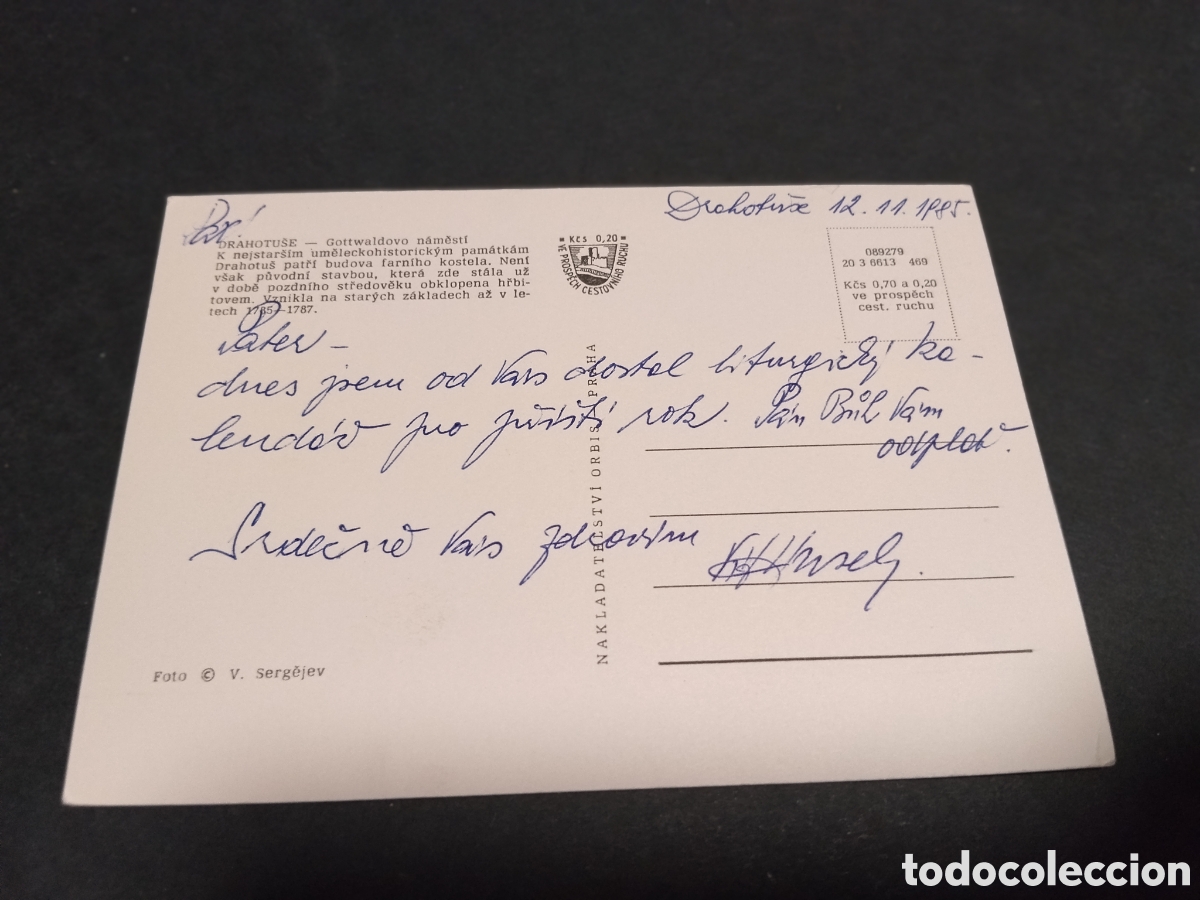 Pax!
Drahotuše 12.11.1985.
DRAHOTUŠE — Gottwaldovo náměstí
K nejstarším uměleckohistorickým památkám
Drahotuš patří budova farního kostela. Není
však původní stavbou, která zde stála už
v době pozdního středověku obklopena hřbi-
tovem. Vznikla na starých základech až v le-
tech 1785—1787.
Kčs 0,20
VE PROSPĚCH CESTOVNÍHO RUCHU
089279
20 3 6613 469
Kčs 0,70 a 0,20
ve prospěch
cest. ruchu
Pater —
dnes jsem od Vás dostal liturgický ka-
lendář pro příští rok. Pán Bůh Vám
odplať.
Srdečně Vás zdravím
NAKLADATELSTVÍ ORBIS, PRAHA
Foto © V. Sergějev
todocoleccion